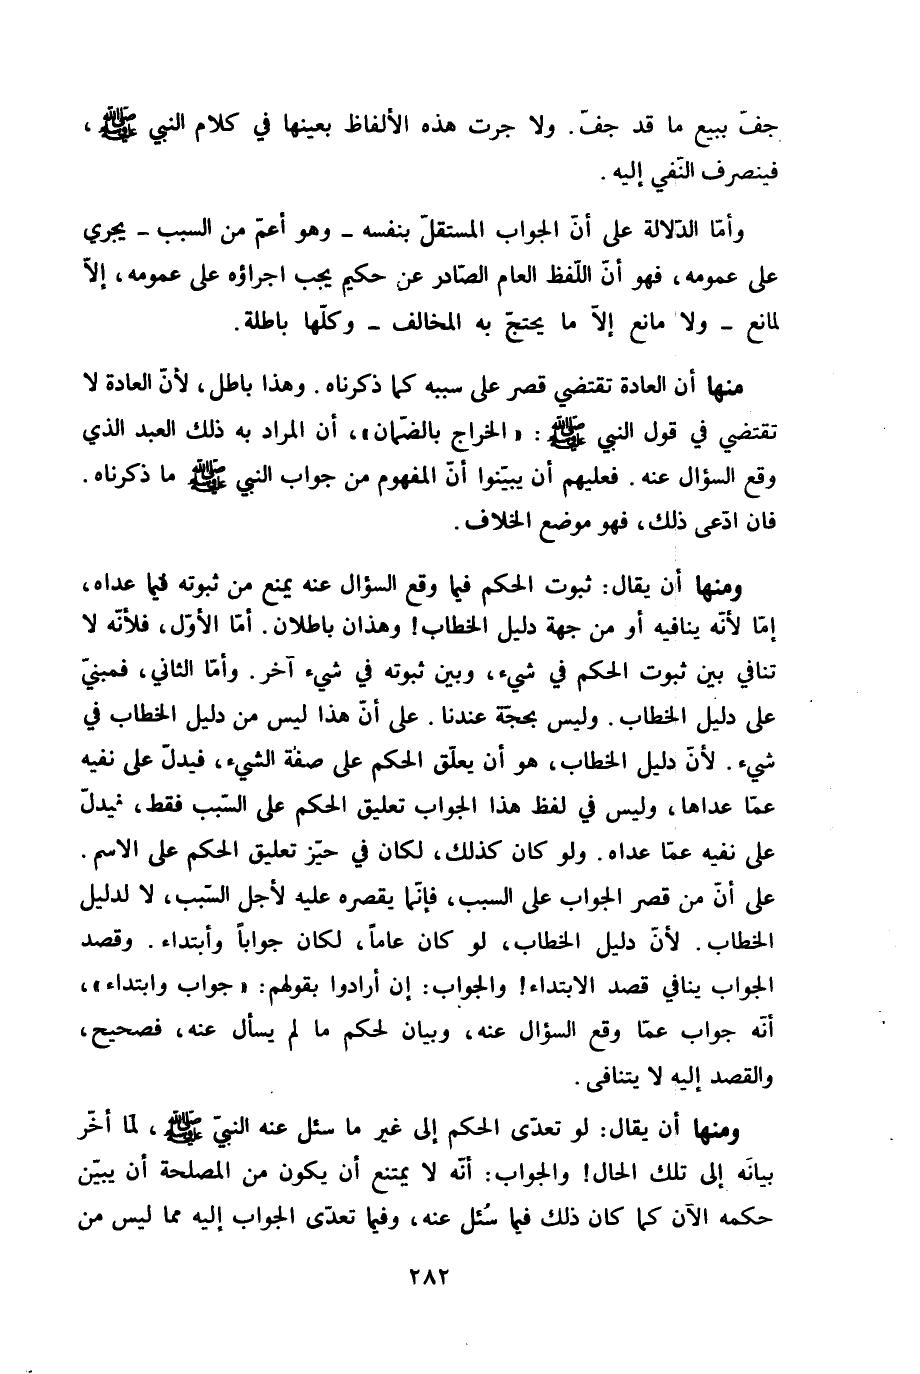 جفّ ببيع ما قد جفّ. ولا جرت هذه الألفاظ بعينها في كلام النبي ﷺ،
فينصرف النّفي إليه.
وأمّا الدّلالة على أنّ الجواب المستقلّ بنفسه - وهو أعمّ من السبب - يجري
على عمومه، فهو أنّ اللّفظ العام الصّادر عن حكيم يجب اجراؤه على عمومه، إلاّ
لمانع - ولا مانع إلاّ ما يحتجّ به المخالف - وكلّها باطلة.
منها أن العادة تقتضي قصر على سببه كما ذكرناه. وهذا باطل، لأنّ العادة لا
تقتضي في قول النبي ﷺ: «الخراج بالضّمان»، أن المراد به ذلك العبد الذي
وقع السؤال عنه. فعليهم أن يبيّنوا أنّ المفهوم من جواب النبي ﷺ ما ذكرناه.
فان ادّعى ذلك، فهو موضع الخلاف.
ومنها أن يقال: ثبوت الحكم فيما وقع السؤال عنه يمنع من ثبوته فيما عداه،
إمّا لأنّه ينافيه أو من جهة دليل الخطاب! وهذان باطلان. أمّا الأوّل، فلأنّه لا
تنافي بين ثبوت الحكم في شيء، وبين ثبوته في شيء آخر. وأمّا الثاني، فمبنيّ
على دليل الخطاب. وليس بحجّة عندنا. على أنّ هذا ليس من دليل الخطاب في
شيء. لأنّ دليل الخطاب، هو أن يعلّق الحكم على صفة الشيء، فيدلّ على نفيه
عمّا عداها، وليس في لفظ هذا الجواب تعليق الحكم على السّبب فقط، فيدلّ
على نفيه عمّا عداه. ولو كان كذلك، لكان في حيّز تعليق الحكم على الاسم.
على أنّ من قصر الجواب على السبب، فإنّما يقصره عليه لأجل السّبب، لا لدليل
الخطاب. لأنّ دليل الخطاب، لو كان عاماً، لكان جواباً وأبتداء. وقصد
الجواب ينافي قصد الابتداء! والجواب: إن أرادوا بقولهم: «جواب وابتداء»،
أنّه جواب عمّا وقع السؤال عنه، وبيان لحكم ما لم يسأل عنه، فصحيح،
والقصد إليه لا يتنافى.
ومنها أن يقال: لو تعدّى الحكم إلى غير ما سئل عنه النبيّ ﷺ، لمّا أخّر
بيانَه إلى تلك الحال! والجواب: أنّه لا يمتنع أن يكون من المصلحة أن يبيّن
حكمه الآن كما كان ذلك فيما سُئل عنه، وفيما تعدّى الجواب إليه مما ليس من
٢٨٢